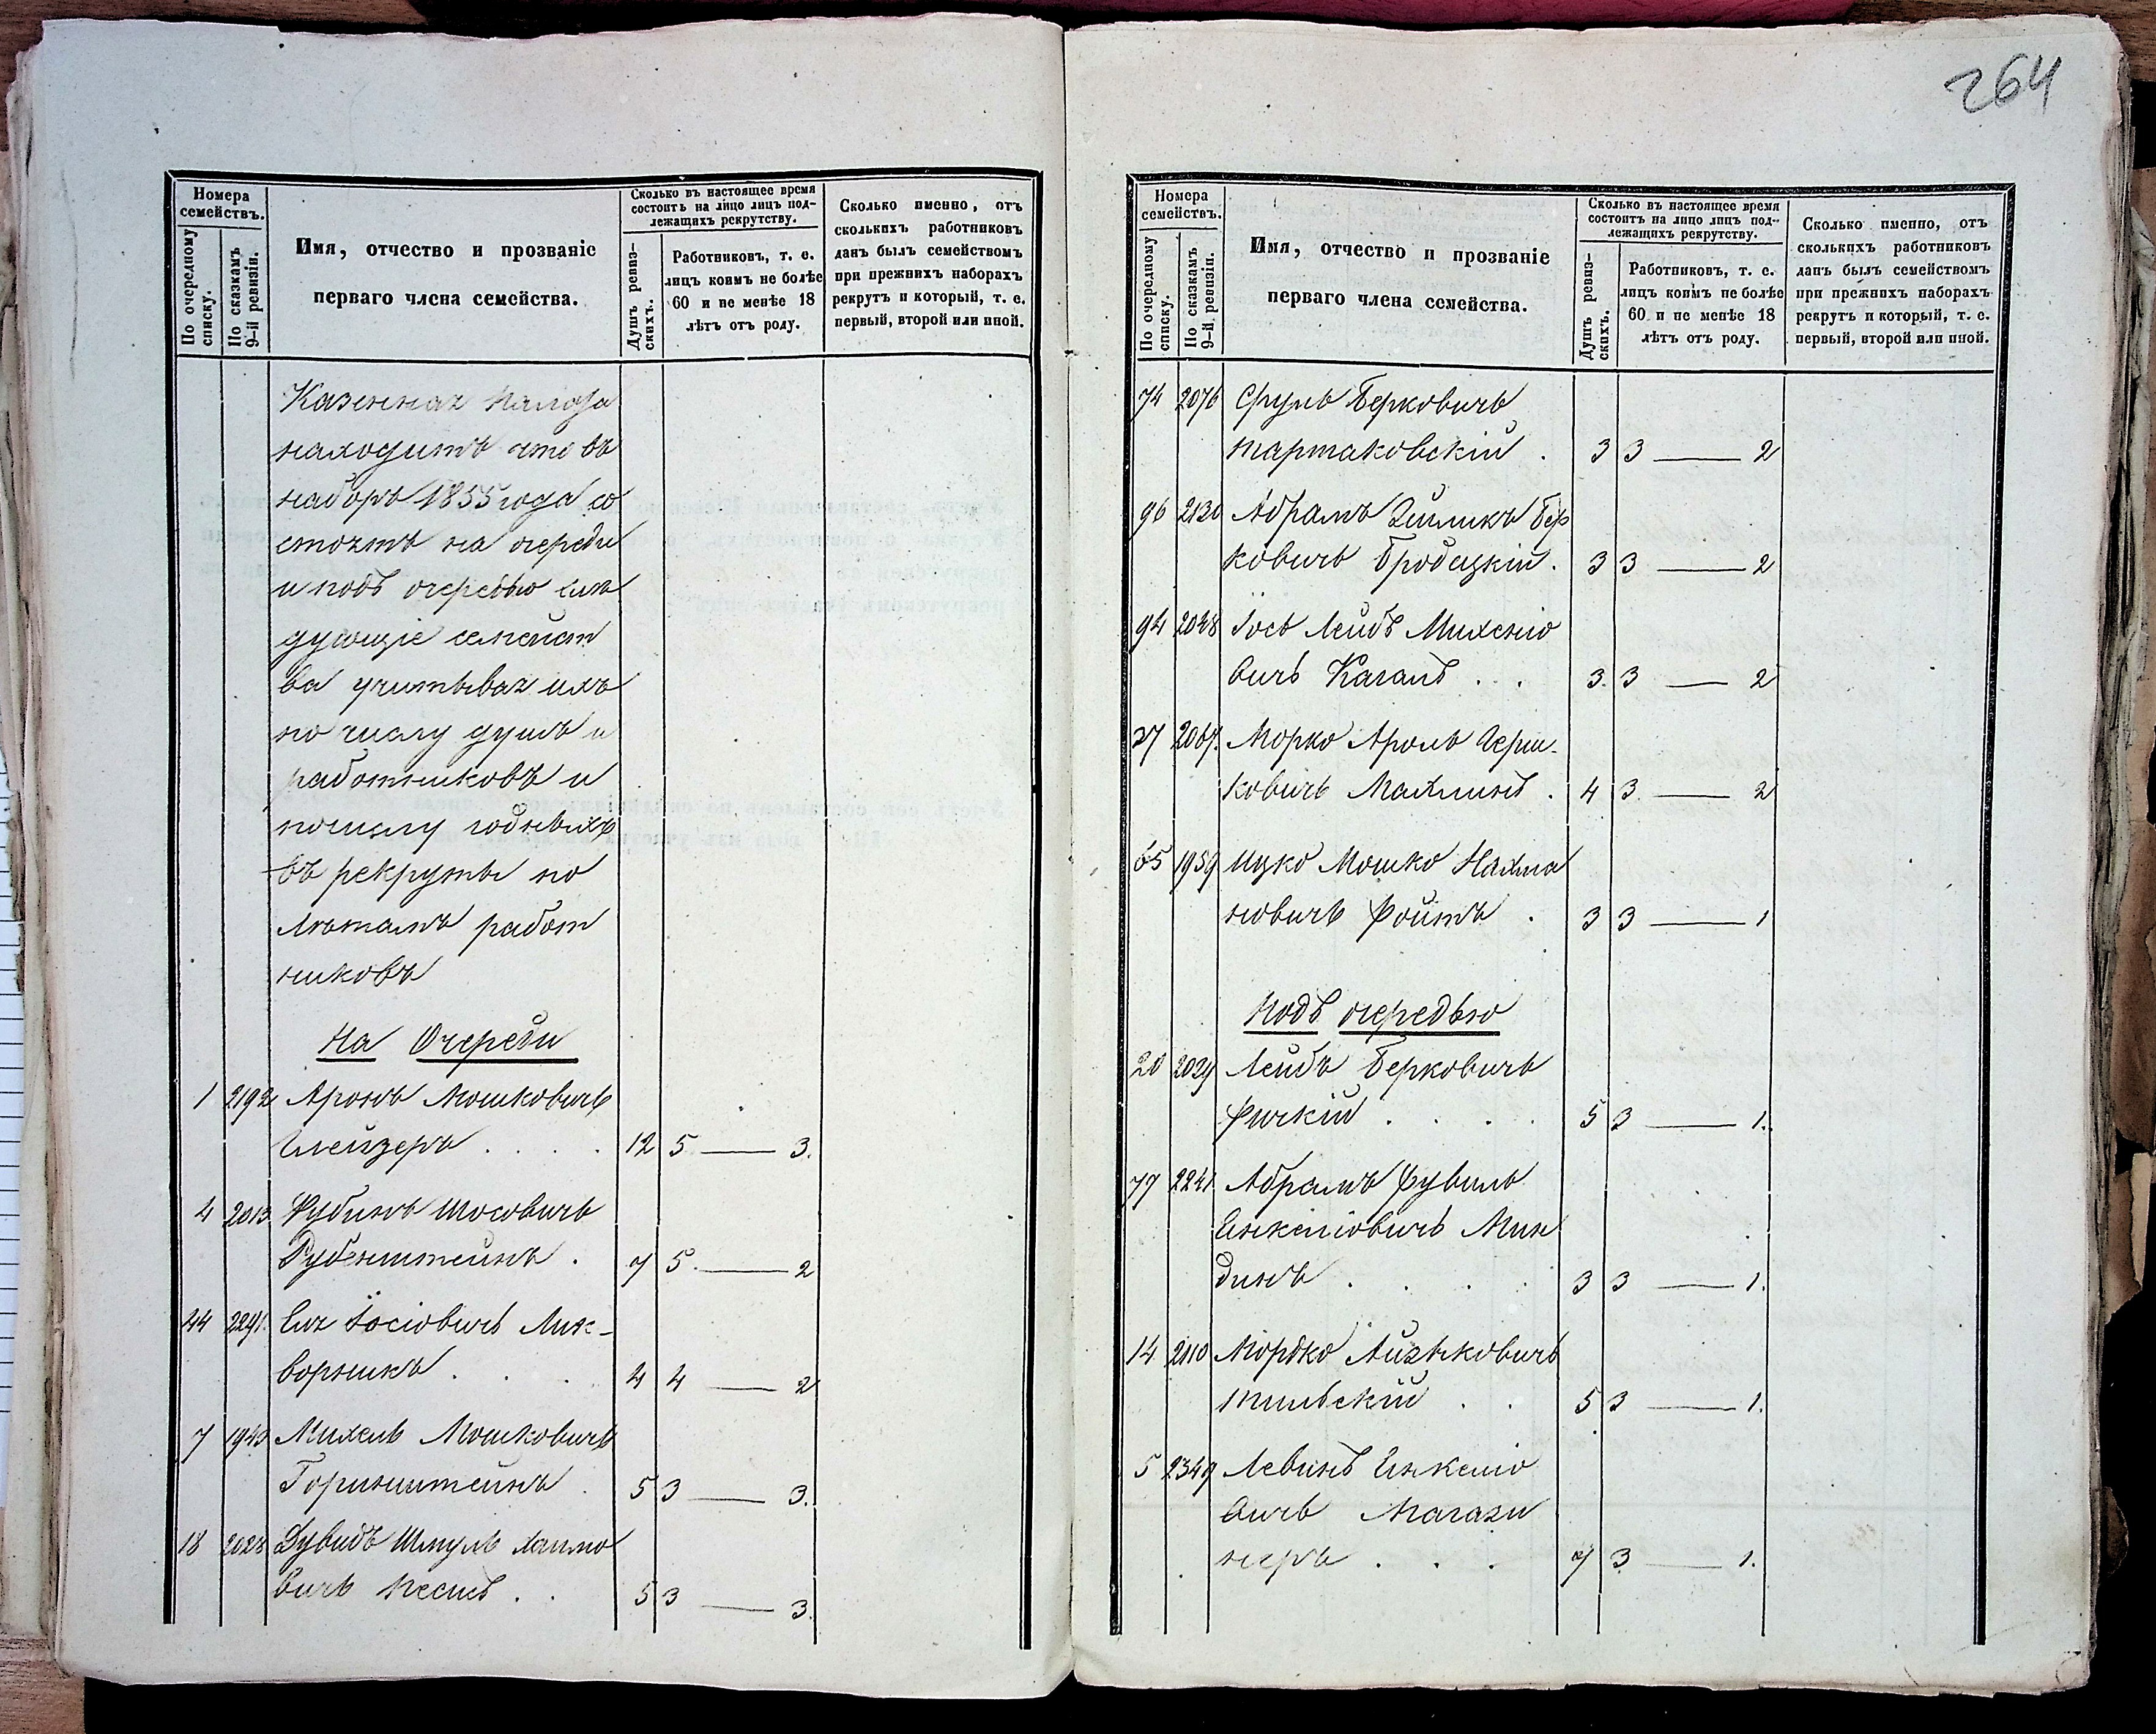 264
Номера семействъ.
По очередному списку.
По сказкамъ 9-й ревизіи.
Имя, отчество и прозваніе
перваго члена семейства.
Сколько въ настоящее время
состоитъ на лицо лицъ под-
лежащихъ рекрутству.
Душъ ревиз-
скихъ.
Работниковъ, т. е.
лицъ коимъ не болѣе
60 и не менѣе 18
лѣтъ отъ роду.
Сколько именно, отъ
сколькихъ работниковъ
данъ былъ семействомъ
при прежнихъ наборахъ
рекрутъ и который, т. е.
первый, второй или иной.
Казенная Палата
находитъ что въ
наборъ 1855 года со
стоятъ на очереди
и подъ очередью слѣ
дующіе семейст
ва учитывая ихъ
по числу душъ и
работниковъ и
по числу годныхъ
въ рекруты по
лѣтамъ работ
никовъ
На Очереди
1 2192 Аронъ Мошковичъ
Глейзеръ . . . . 12 5 — 3.
4 2013 Рубинъ Шосовичъ
Рубенштейнъ . 7 5 — 2
44 2291 Іосіовичъ
ворникъ . . . 4 4 — 2
7 1943 Михель Мошковичъ
Горинштейнъ . 5 3 — 3.
18 2028 Дувидъ Шмуль Хаимо
вичъ Песисъ . . 5 3 — 3.
Номера
семействъ.
По очередному
списку.
По сказкамъ
9-й ревизіи.
Имя, отчество и прозваніе
перваго члена семейства.
Сколько въ настоящее время
состоитъ на лицо лицъ под-
лежащихъ рекрутству.
Душъ ревиз-
скихъ.
Работниковъ, т. е.
лицъ коимъ не болѣе
60 и не менѣе 18
лѣтъ отъ роду.
Сколько именно, отъ
сколькихъ работниковъ
данъ былъ семействомъ
при прежнихъ наборахъ
рекрутъ и который, т. е.
первый, второй или иной.
74 2076 Сруль Берковичъ
Тартаковскій . 3 3 — 2
96 2130 Абрамъ Зейликъ Бер
ковичъ Бродецкій . 3 3 — 2
94 2048 Іось Лейбъ Михеліо
вичъ Каганъ . . 3. 3 — 2
27 2067. Морко Аронъ Герш-
ковичъ Махлинъ . 4 3. — 2
65 1959 Ицко Мошко Нахма
новичъ Фойтъ . 3 3 — 1
Подъ очередью
20 2029 Лейбъ Берковичъ
. . . . 5 3 — 1.
77 2241 Абрамъ Фувель
Янкеліовичъ Мин
динъ . . . . 3 3 — 1.
14 2110 Мордко Айзиковичъ
Тильскій . . 5 3 — 1.
5 2349 Левинъ Янкеліо
вичъ Магази
неръ . . . 7 3 — 1.